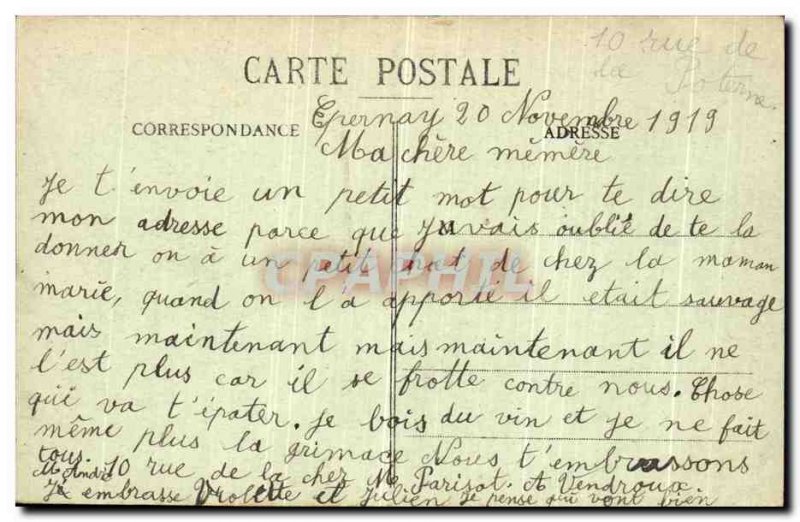 10 rue de
la Poterne
CARTE POSTALE
CORRESPONDANCE
ADRESSE
Epernay 20 Novembre 1919
Ma chère mémère
Je t'envoie un petit mot pour te dire
mon adresse parce que j'avais oublié de te la
donner on à un petit chat de chez la maman
marie, quand on l'a apporté il etait sauvage
mais maintenant mais maintenant il ne
l'est plus car il se frotte contre nous. Chose
qui va t'épater. Je bois du vin et je ne fait
même plus la grimace Nous t'embrassons
tous.
M André 10 rue de la chez M Parisot. et Vendroux.
Je embrasse Violette et Julien je pense qui vont bien
CPAPHIL